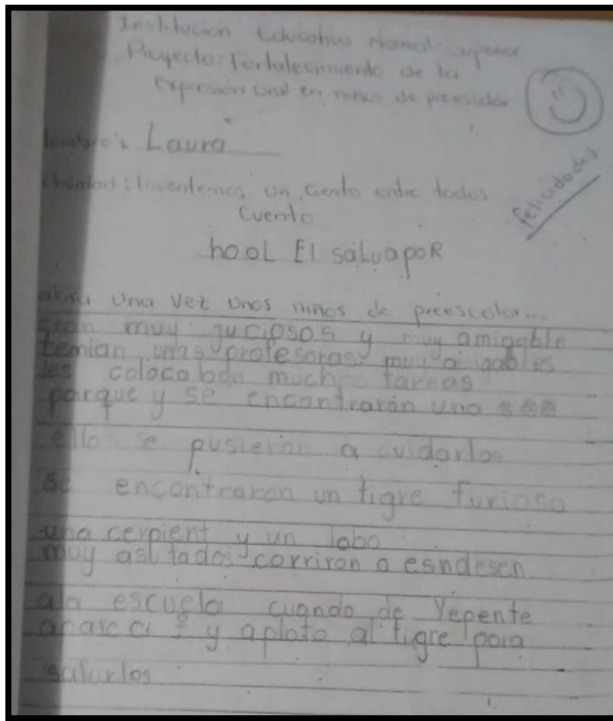 Institución Educativa Normal Superior
Proyecto: Fortalecimiento de la
expresión oral en niños de preescolar
Nombre: Laura
felicidades
Actividad: Inventemos un cuento entre todos
Cuento
hooL El salvapoR
abía una vez unos niños de preescolar...
eran muy juciosos y muy amigable
temian unas profesoras muy amigables
les colocaban muchas tareas
parque y se encontrarán uno
ellos se pusierón a cuidarlos
se encontraron un tigre furioso
una cerpient y un lobo
muy asutados corriron a esndesen
ala escuela cuando de repente
apareci y aploto al tigre para
salvarlos